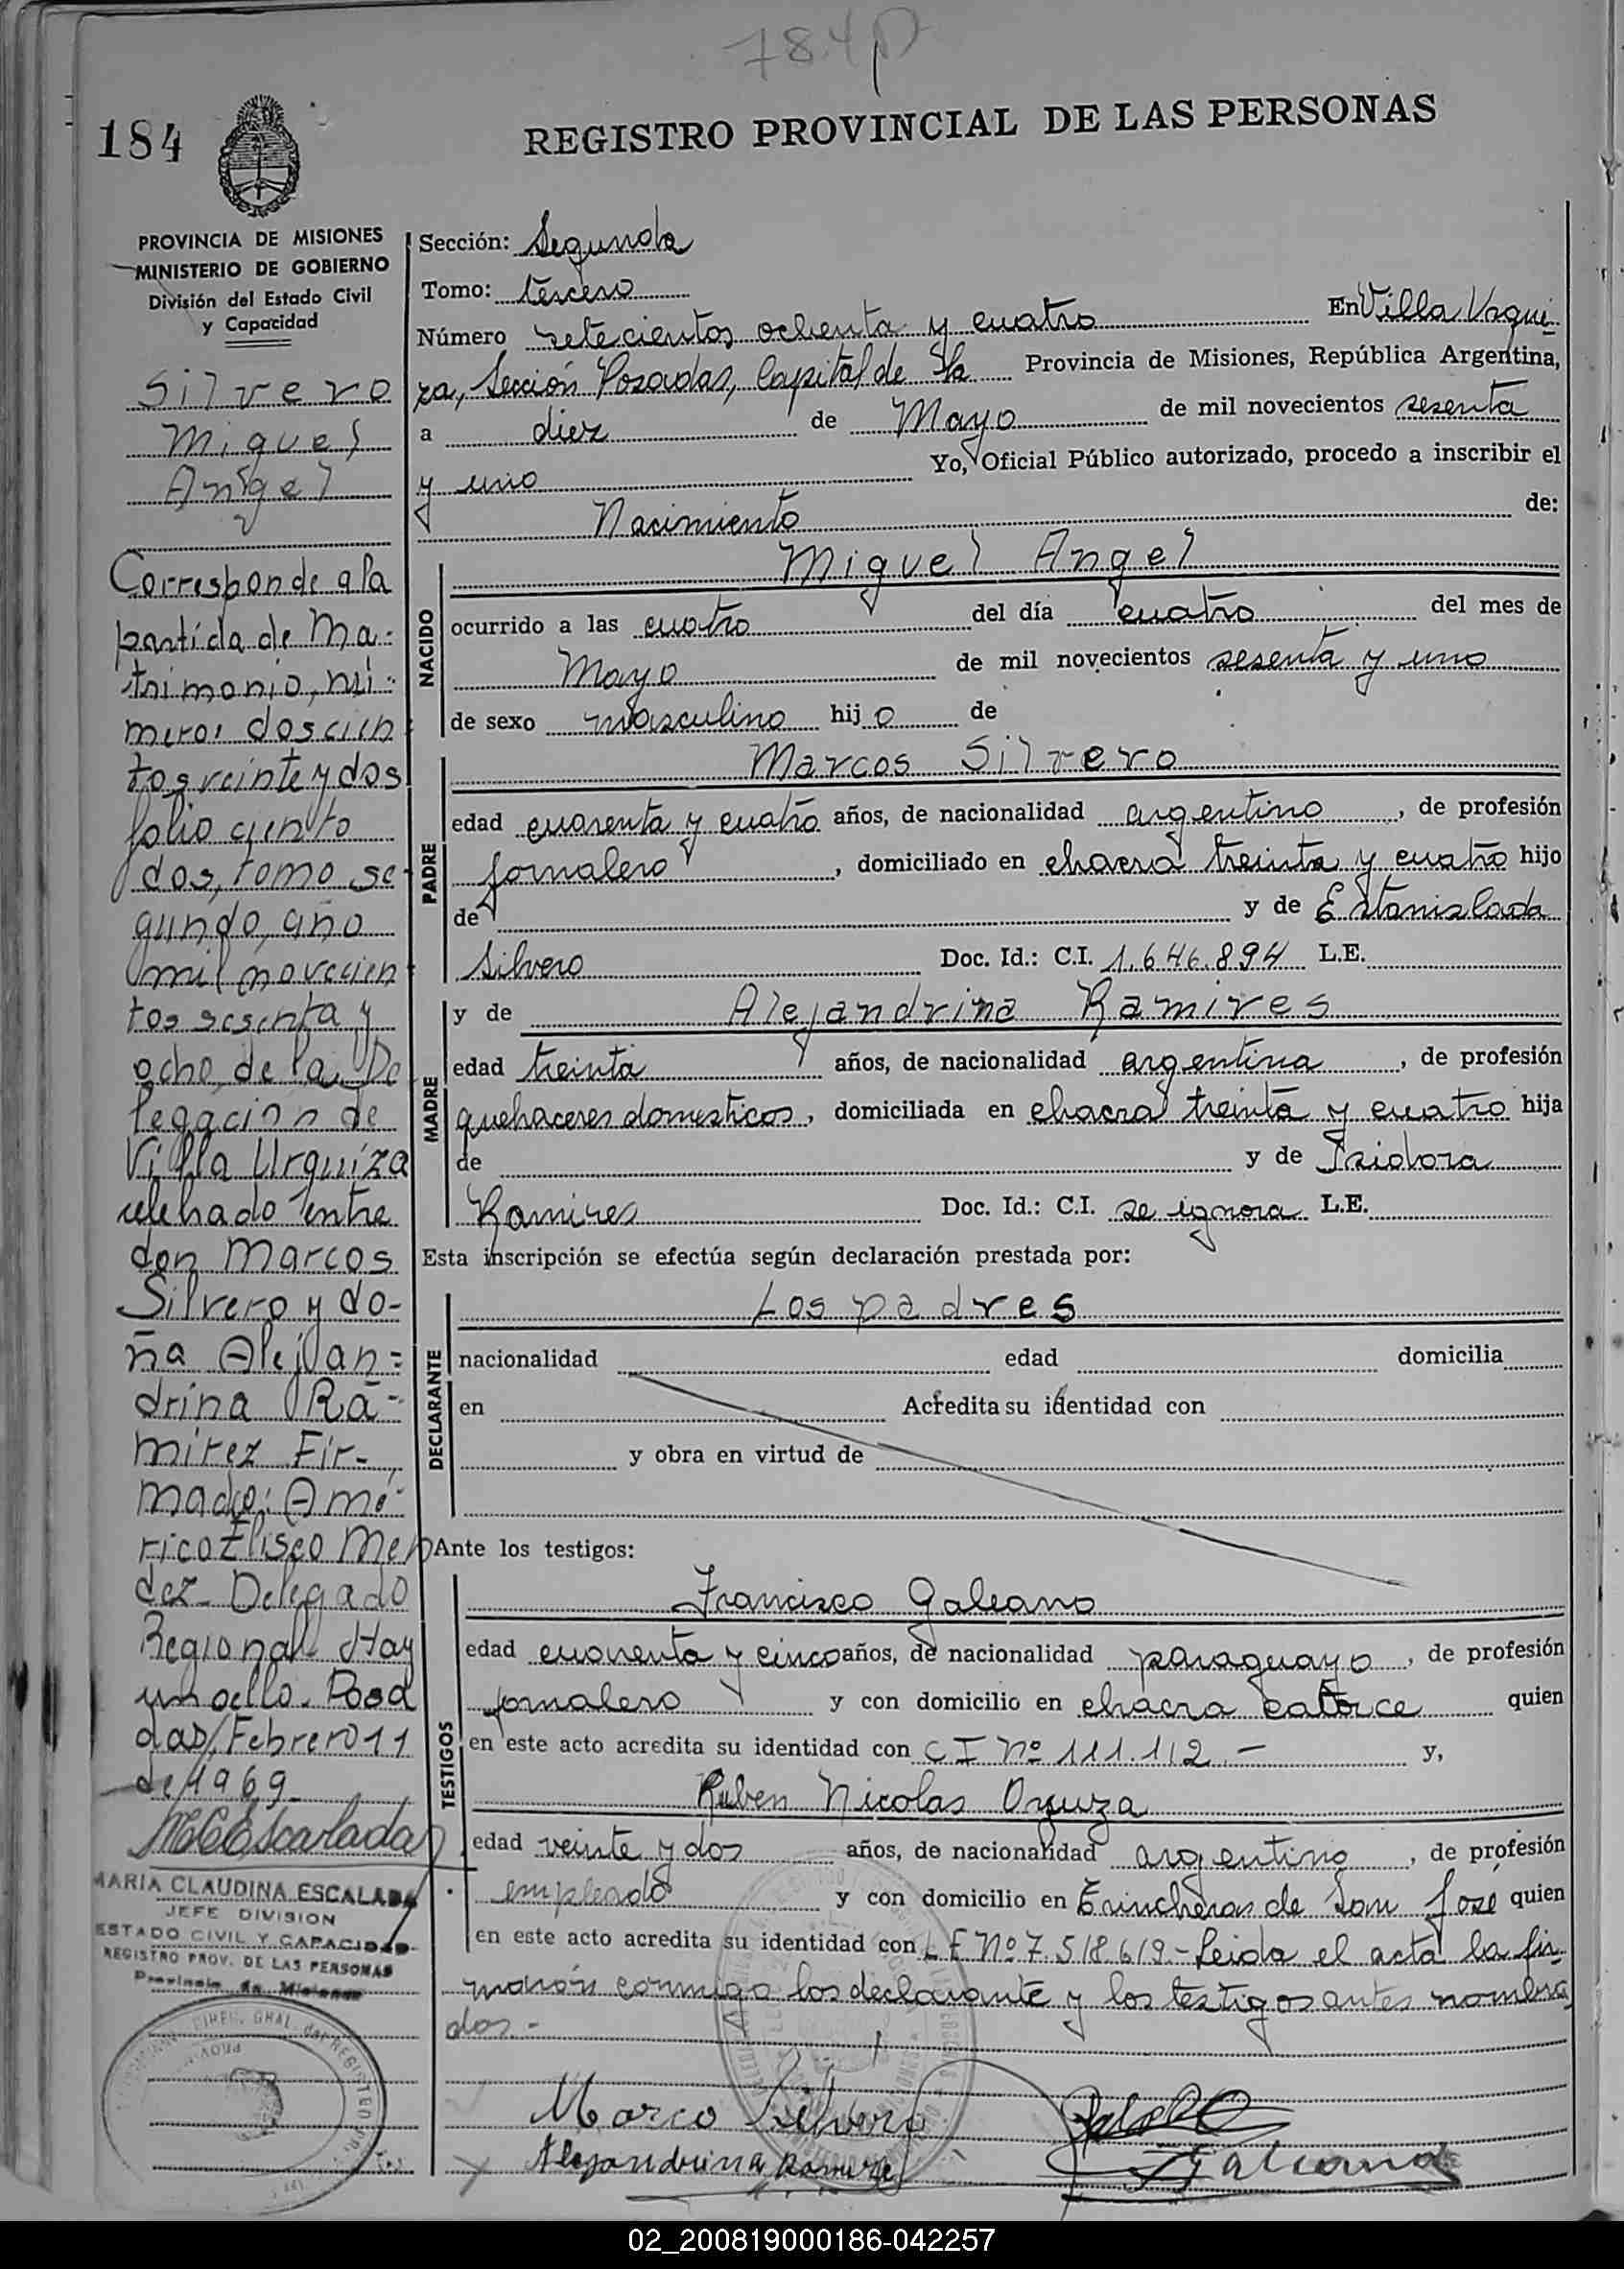 784
184
REGISTRO PROVINCIAL DE LAS PERSONAS
PROVINCIA DE MISIONES
MINISTERIO DE GOBIERNO
División del Estado Civil
y Capacidad
Silvero
Miguel
Angel
Corresponde a la
partida de Ma-
trimonio, nú-
mero: doscien
tos veinte y dos
folio ciento
dos, tomo se-
gundo, año
mil novecien
tos sesenta y
ocho, de la De
legación de
Villa Urquiza
celebrado entre
don Marcos
Silvero y do-
ña Alejan=
drina Ra-
mirez Fir-
mado: Amé-
rico Eliseo Men
dez - Delegado
Regional Hay
un sello. Posa
das, Febrero 11
de 1969
MCEscalada
MARIA CLAUDINA ESCALADA
JEFE DIVISION
ESTADO CIVIL Y CAPACIDAD
REGISTRO PROV. DE LAS PERSONAS
Provincia de Misiones
Sección: Segunda
Tomo: tercero
Número setecientos ochenta y cuatro En Villa Urqui
za, Sección Posadas, Capital de la Provincia de Misiones, República Argentina,
a diez de Mayo de mil novecientos sesenta
y uno Yo, Oficial Público autorizado, procedo a inscribir el
Nacimiento de:
NACIDO
Miguel Angel
ocurrido a las cuatro del día cuatro del mes de
Mayo de mil novecientos sesenta y uno
de sexo masculino hijo de
PADRE
Marcos Silvero
edad cuarenta y cuatro años, de nacionalidad argentino, de profesión
jornalero, domiciliado en chacra treinta y cuatro hijo
de y de Estanislada
Silvero Doc. Id.: C.I. 1.646.894 L.E.
MADRE
y de Alejandrina Ramires
edad treinta años, de nacionalidad argentina, de profesión
quehaceres domesticos, domiciliada en chacra treinta y cuatro hija
de y de Isidora
Ramires Doc. Id.: C.I. se ignora L.E.
Esta inscripción se efectúa según declaración prestada por:
DECLARANTE
Los padres
nacionalidad edad domicilia
en Acredita su identidad con
y obra en virtud de
Ante los testigos:
TESTIGOS
Francisco Galeano
edad cuarenta y cinco años, de nacionalidad paraguayo, de profesión
jornalero y con domicilio en chacra catorce quien
en este acto acredita su identidad con C I Nº 111.112.- y,
Ruben Nicolas Oryuza
edad veinte y dos años, de nacionalidad argentino, de profesión
empleado y con domicilio en Trincheras de San José quien
en este acto acredita su identidad con L E Nº 7.518.619.- Leida el acta la fir
marón conmigo los declarante y los testigos antes nombra
dos.-
Marco Silvero
Alejandrina Ramirez
Galeano
02_200819000186-042257